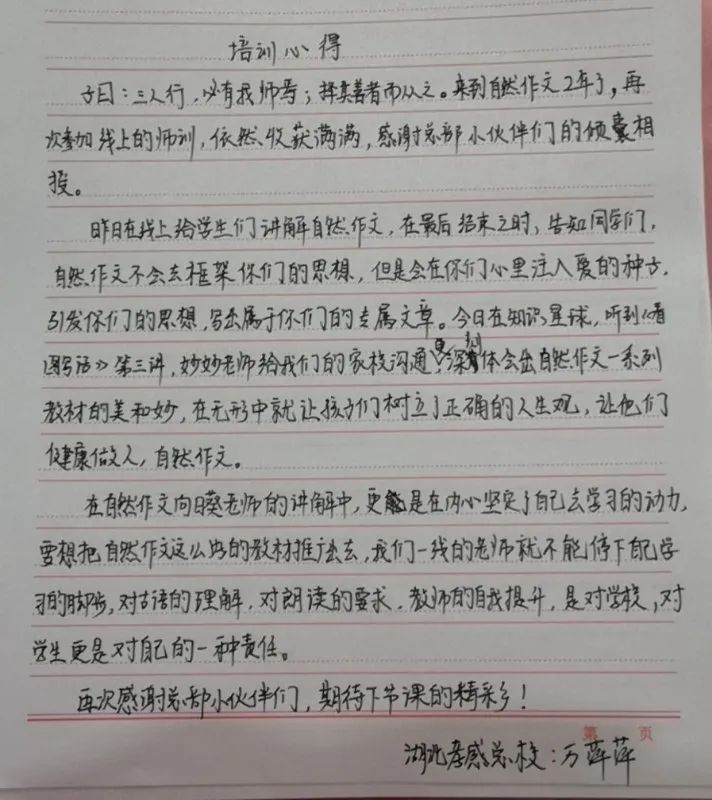 培训心得
子曰：三人行，必有我师焉；择其善者而从之。来到自然作文2年了，再
次参加线上的师训，依然收获满满，感谢总部小伙伴们的倾囊相
授。
昨日在线上给学生们讲解自然作文，在最后结束之时，告知同学们，
自然作文不会去框架你们的思想，但是会在你们心里注入爱的种子，
引发你们的思想，写出属于你们的专属文章。今日在知识星球，听到《看
图写话》第三讲，妙妙老师给我们的家校沟通，更深刻体会出自然作文一系列
教材的美和妙，在无形中就让孩子们树立了正确的人生观，让他们
健康做人，自然作文。
在自然作文向日葵老师的讲解中，更是在内心坚定了自己去学习的动力，
要想把自然作文这么好的教材推广出去，我们一线的老师就不能停下自己学
习的脚步，对古语的理解，对朗读的要求，教师的自我提升，是对学校，对
学生更是对自己的一种责任。
再次感谢总部小伙伴们，期待下节课的精彩！
第 页
湖北孝感总校：万萍萍